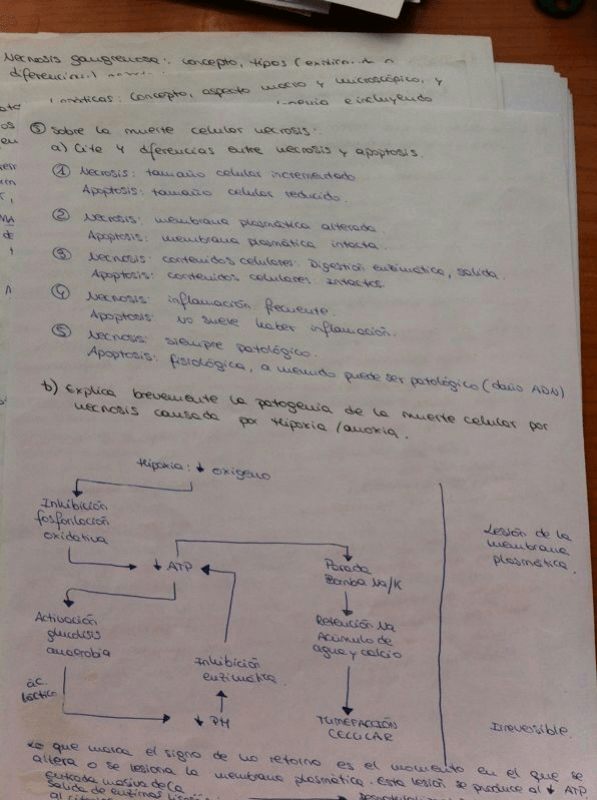 Necrosis gangrenosa: concepto, tipos
concepto, aspecto macro y microscópico, y
e incluyendo
③ Sobre la muerte celular necrosis:
a) Cite 4 diferencias entre necrosis y apoptosis.
① Necrosis: tamaño celular incrementado
Apoptosis: tamaño celular reducido.
② Necrosis: membrana plasmática alterada
Apoptosis: membrana plasmática intacta.
③ Necrosis: contenidos celulares: Digestión enzimática, salida.
Apoptosis: contenidos celulares: intactos
④ Necrosis: inflamación frecuente.
Apoptosis: no suele haber inflamación.
⑤ Necrosis: siempre patológico.
Apoptosis: fisiológica, a menudo puede ser patológico (daño ADN)
b) Explica brevemente la patogenia de la muerte celular por
necrosis causada por Hipoxia/anoxia.
Hipoxia: ↓ oxígeno
Inhibición
fosforilación
oxidativa
↓ ATP
Parada
Bomba Na/K
Lesión de la
membrana
plasmática.
Activación
glucólisis
anaerobia
Retención Na
Acúmulo de
agua y calcio
Inhibición
enzimática.
ác.
láctico
↓ PH
TUMEFACCIÓN
CELULAR
Irreversible.
Lo que marca el signo de no retorno es el momento en el que se
altera o se lesiona la membrana plasmática. Esta lesión se produce al ↓ ATP
entrada masiva de Ca
Salida de enzimas